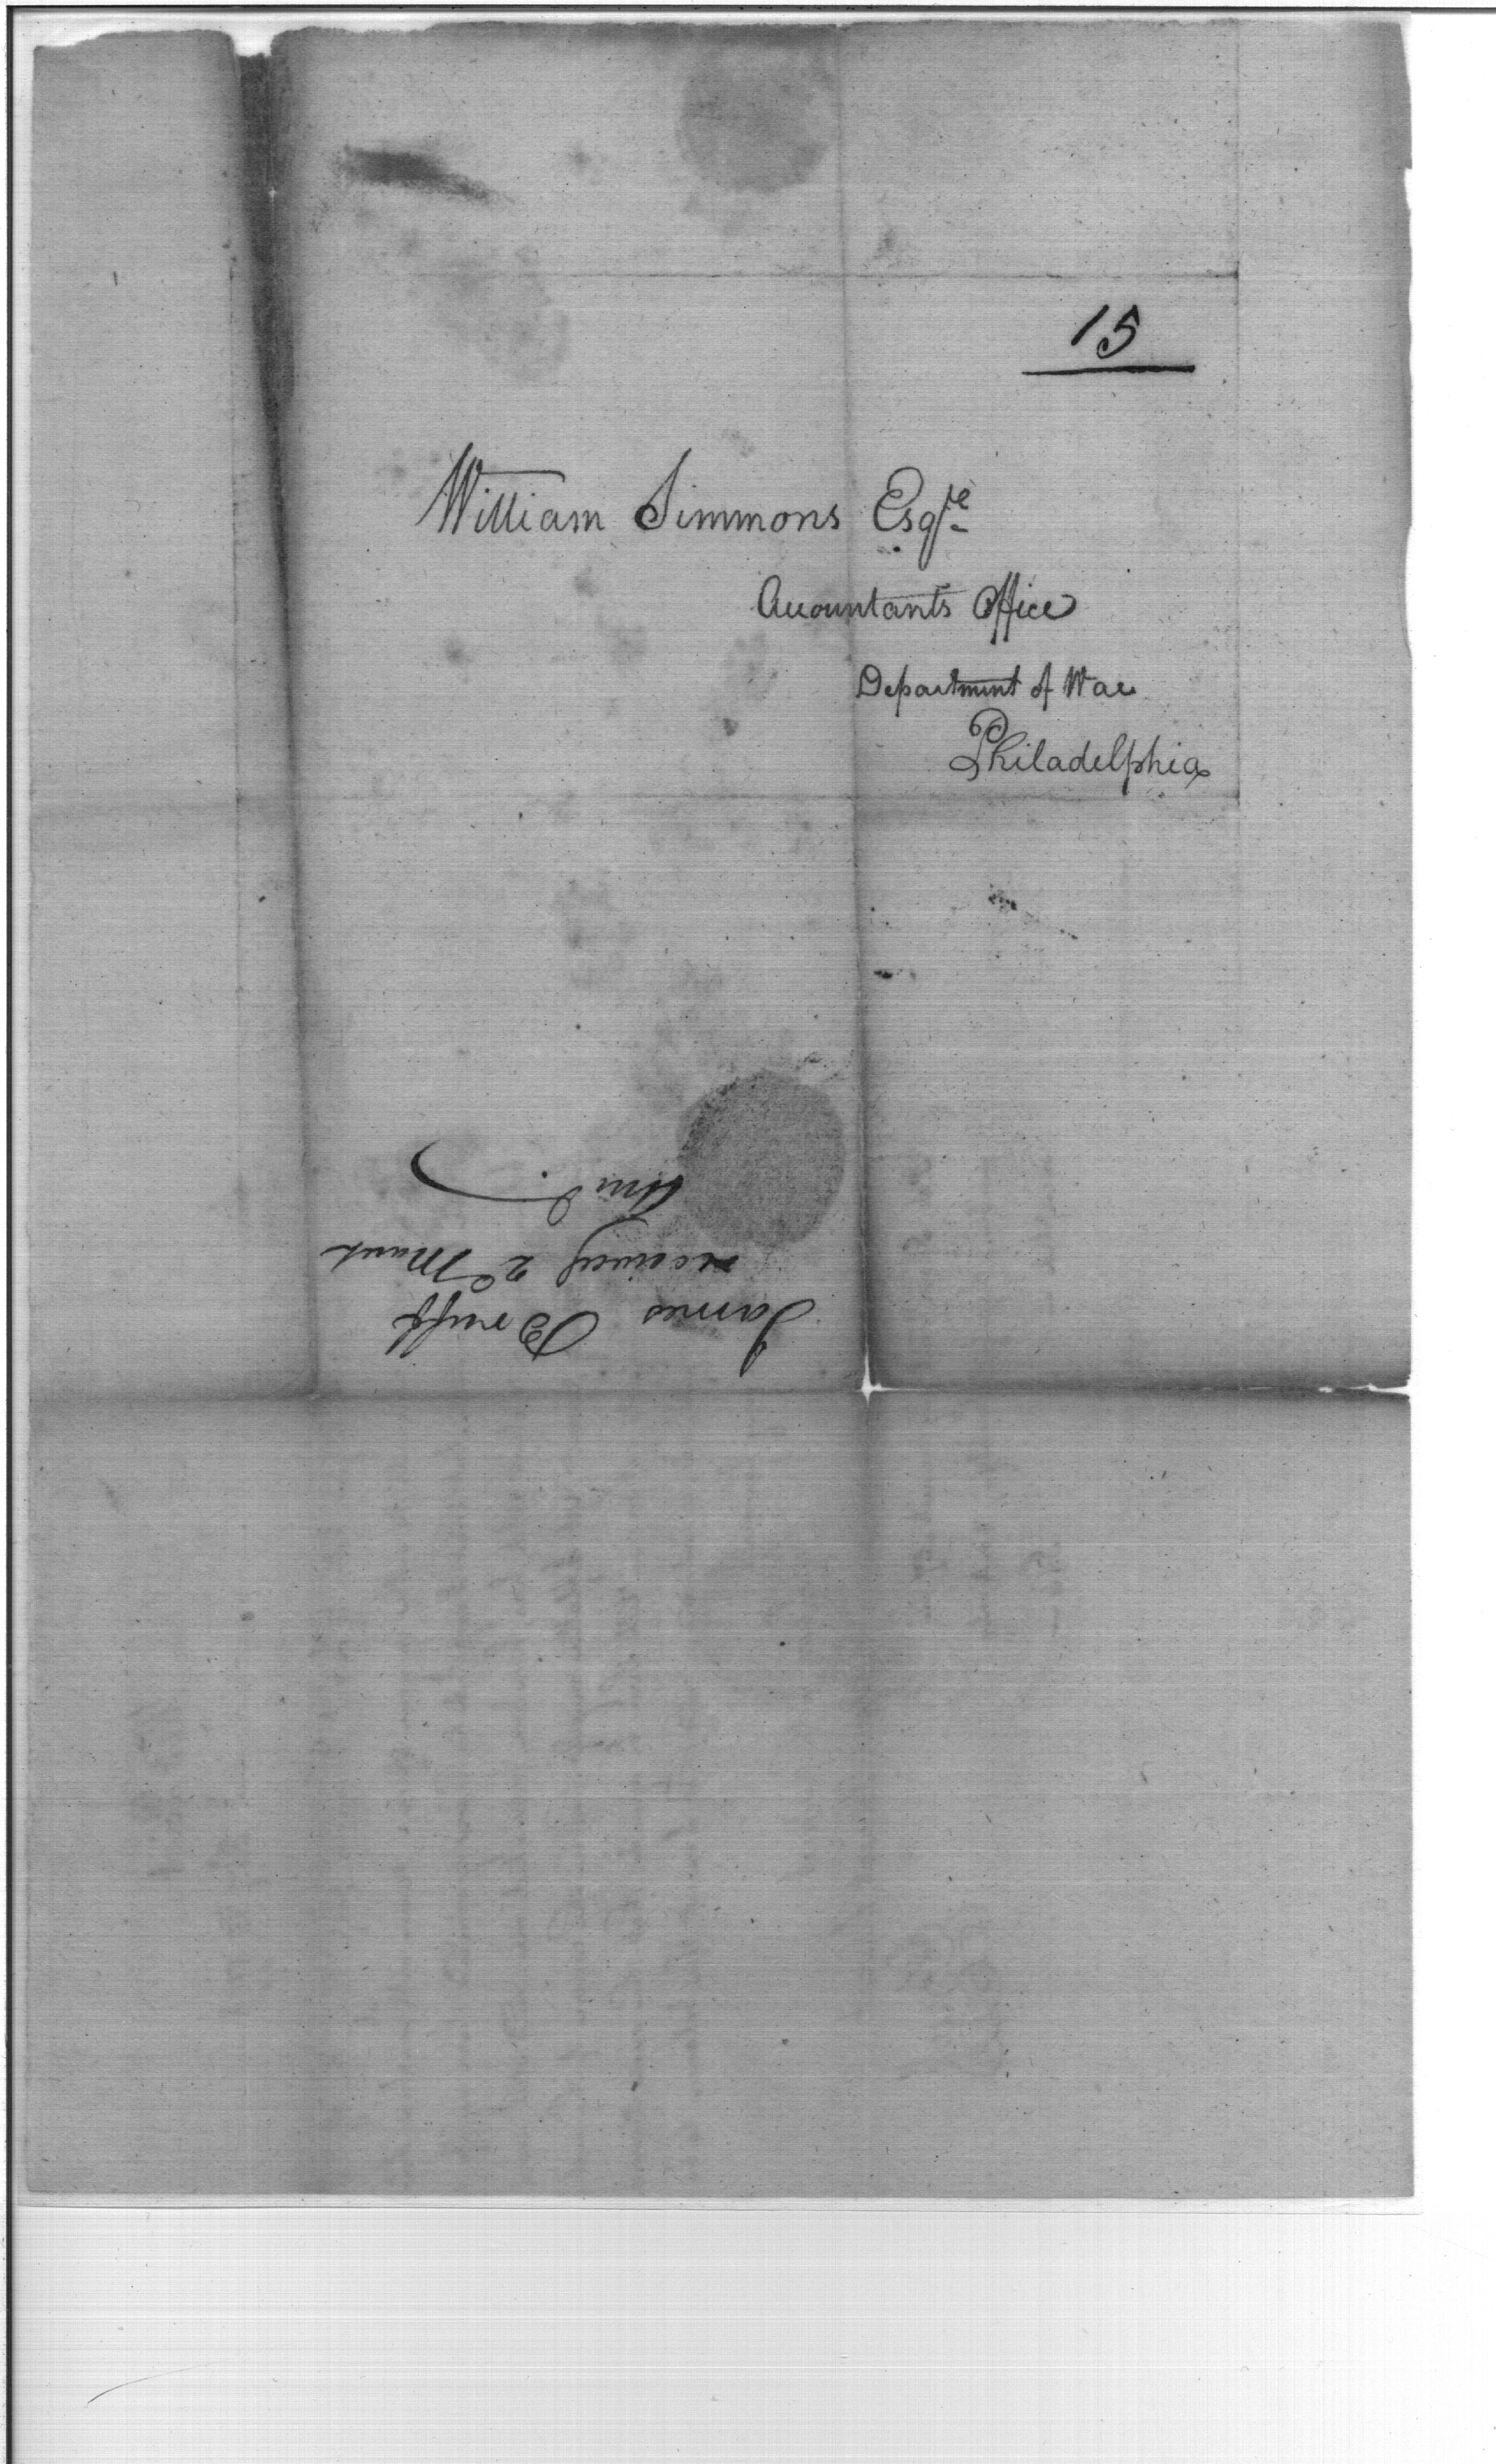 15
William Simmons Esqre
Accountants Office
Department of War
Philadelphia
James Bruff
received 2d March